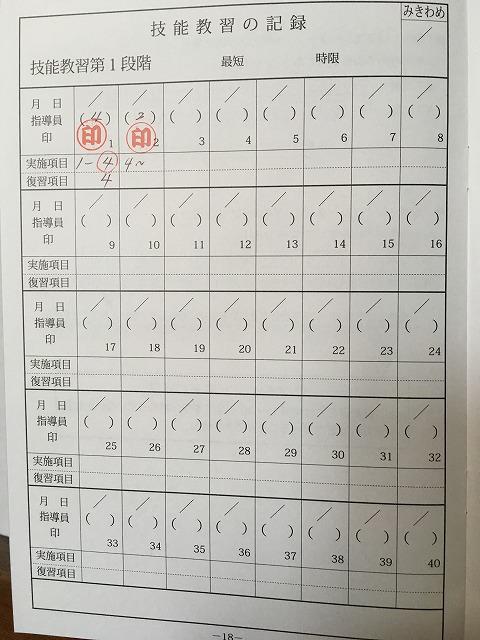 技能教習の記録
みきわめ
／
技能教習第1段階 最短 時限
月 日 ／ ／ ／ ／ ／ ／ ／ ／
指導員 (4) (2) ( ) ( ) ( ) ( ) ( ) ( )
印 印 1 印 2 3 4 5 6 7 8
実施項目 1-4 4～
復習項目 4
月 日 ／ ／ ／ ／ ／ ／ ／ ／
指導員 ( ) ( ) ( ) ( ) ( ) ( ) ( ) ( )
印 9 10 11 12 13 14 15 16
実施項目
復習項目
月 日 ／ ／ ／ ／ ／ ／ ／ ／
指導員 ( ) ( ) ( ) ( ) ( ) ( ) ( ) ( )
印 17 18 19 20 21 22 23 24
実施項目
復習項目
月 日 ／ ／ ／ ／ ／ ／ ／ ／
指導員 ( ) ( ) ( ) ( ) ( ) ( ) ( ) ( )
印 25 26 27 28 29 30 31 32
実施項目
復習項目
月 日 ／ ／ ／ ／ ／ ／ ／ ／
指導員 ( ) ( ) ( ) ( ) ( ) ( ) ( ) ( )
印 33 34 35 36 37 38 39 40
実施項目
復習項目
－18－